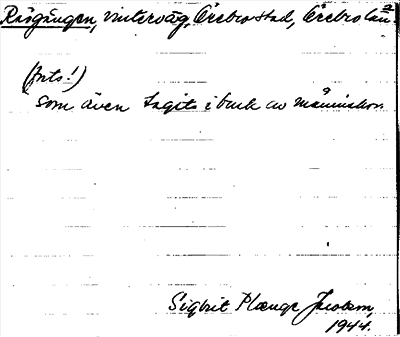 Rävgången, vinterväg, Örebro stad, Örebro län.
(forts!)
som även tagits i bruk av människor.
Sigbrit Plænge Jacobson,
1944.